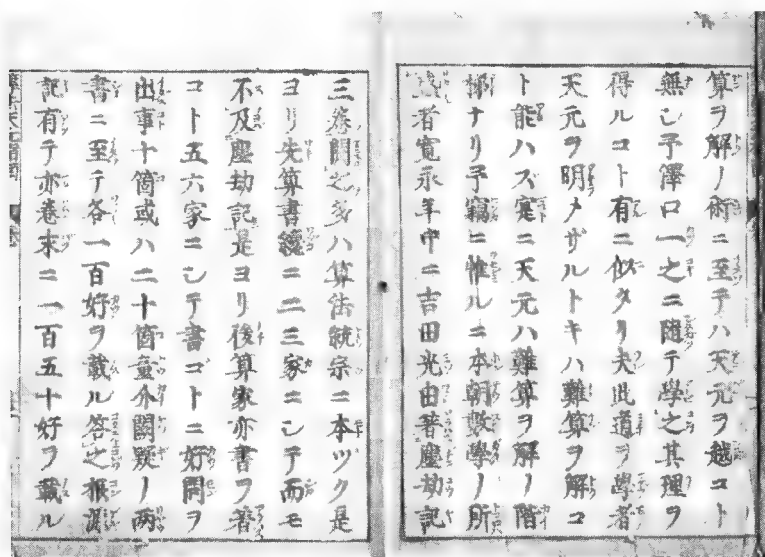 算ヲ解ノ術ニ至テハ天元ヲ越コト
無シ予澤口一之ニ隨テ學之其理ヲ
得ルコト有ニ似タリ夫此道ヲ學者
天元ヲ明メザルトキハ難算ヲ解コ
ト能ハズ寔ニ天元ハ難算ヲ解ノ階
梯ナリ予竊ニ惟ルニ本朝數學ノ所
者寛永年中ニ吉田光由著塵劫記
三卷問之多ハ算法統宗ニ本ヅク是
ヨリ先算書纔ニ二三家ニシテ而モ
不及塵劫記是ヨリ後算家亦書ヲ著
コト五六家ニシテ書ゴトニ好問ヲ
出事十箇或ハ二十箇童介闕疑ノ兩
書ニ至テ各一百好ヲ載ル答之根源
記有テ亦卷末ニ一百五十好ヲ載ル